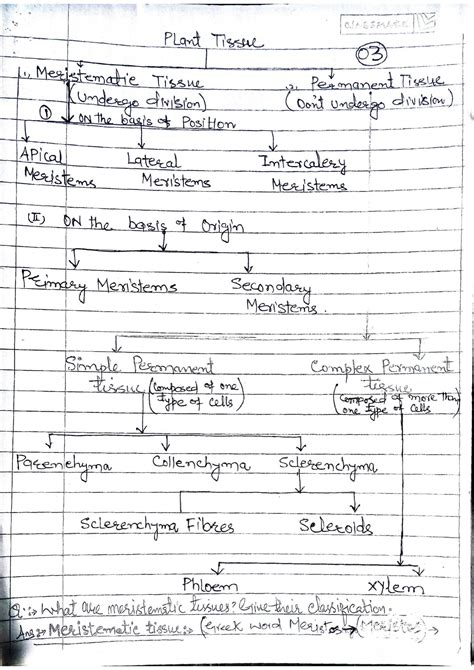 CLASSMATE
Plant Tissue
03
1. Meristematic Tissue
(Undergo division)
2. Permanent Tissue
(Don't undergo division)
① ON the basis of Position
Apical Meristems
Lateral Meristems
Intercalery Meristems
(II) ON the basis of Origin
Primary Meristems
Secondary Meristems.
Simple Permanent tissue (composed of one type of cells)
Complex Permanent tissue (composed of more than one type of cells)
Parenchyma
Collenchyma
Sclerenchyma
Sclerenchyma Fibres
Scleroids
Phloem
Xylem
Q:-> What are meristematic tissues? Give their classification.
Ans:-> Meristematic tissue:-> (Greek word Meristos → (Meristos)